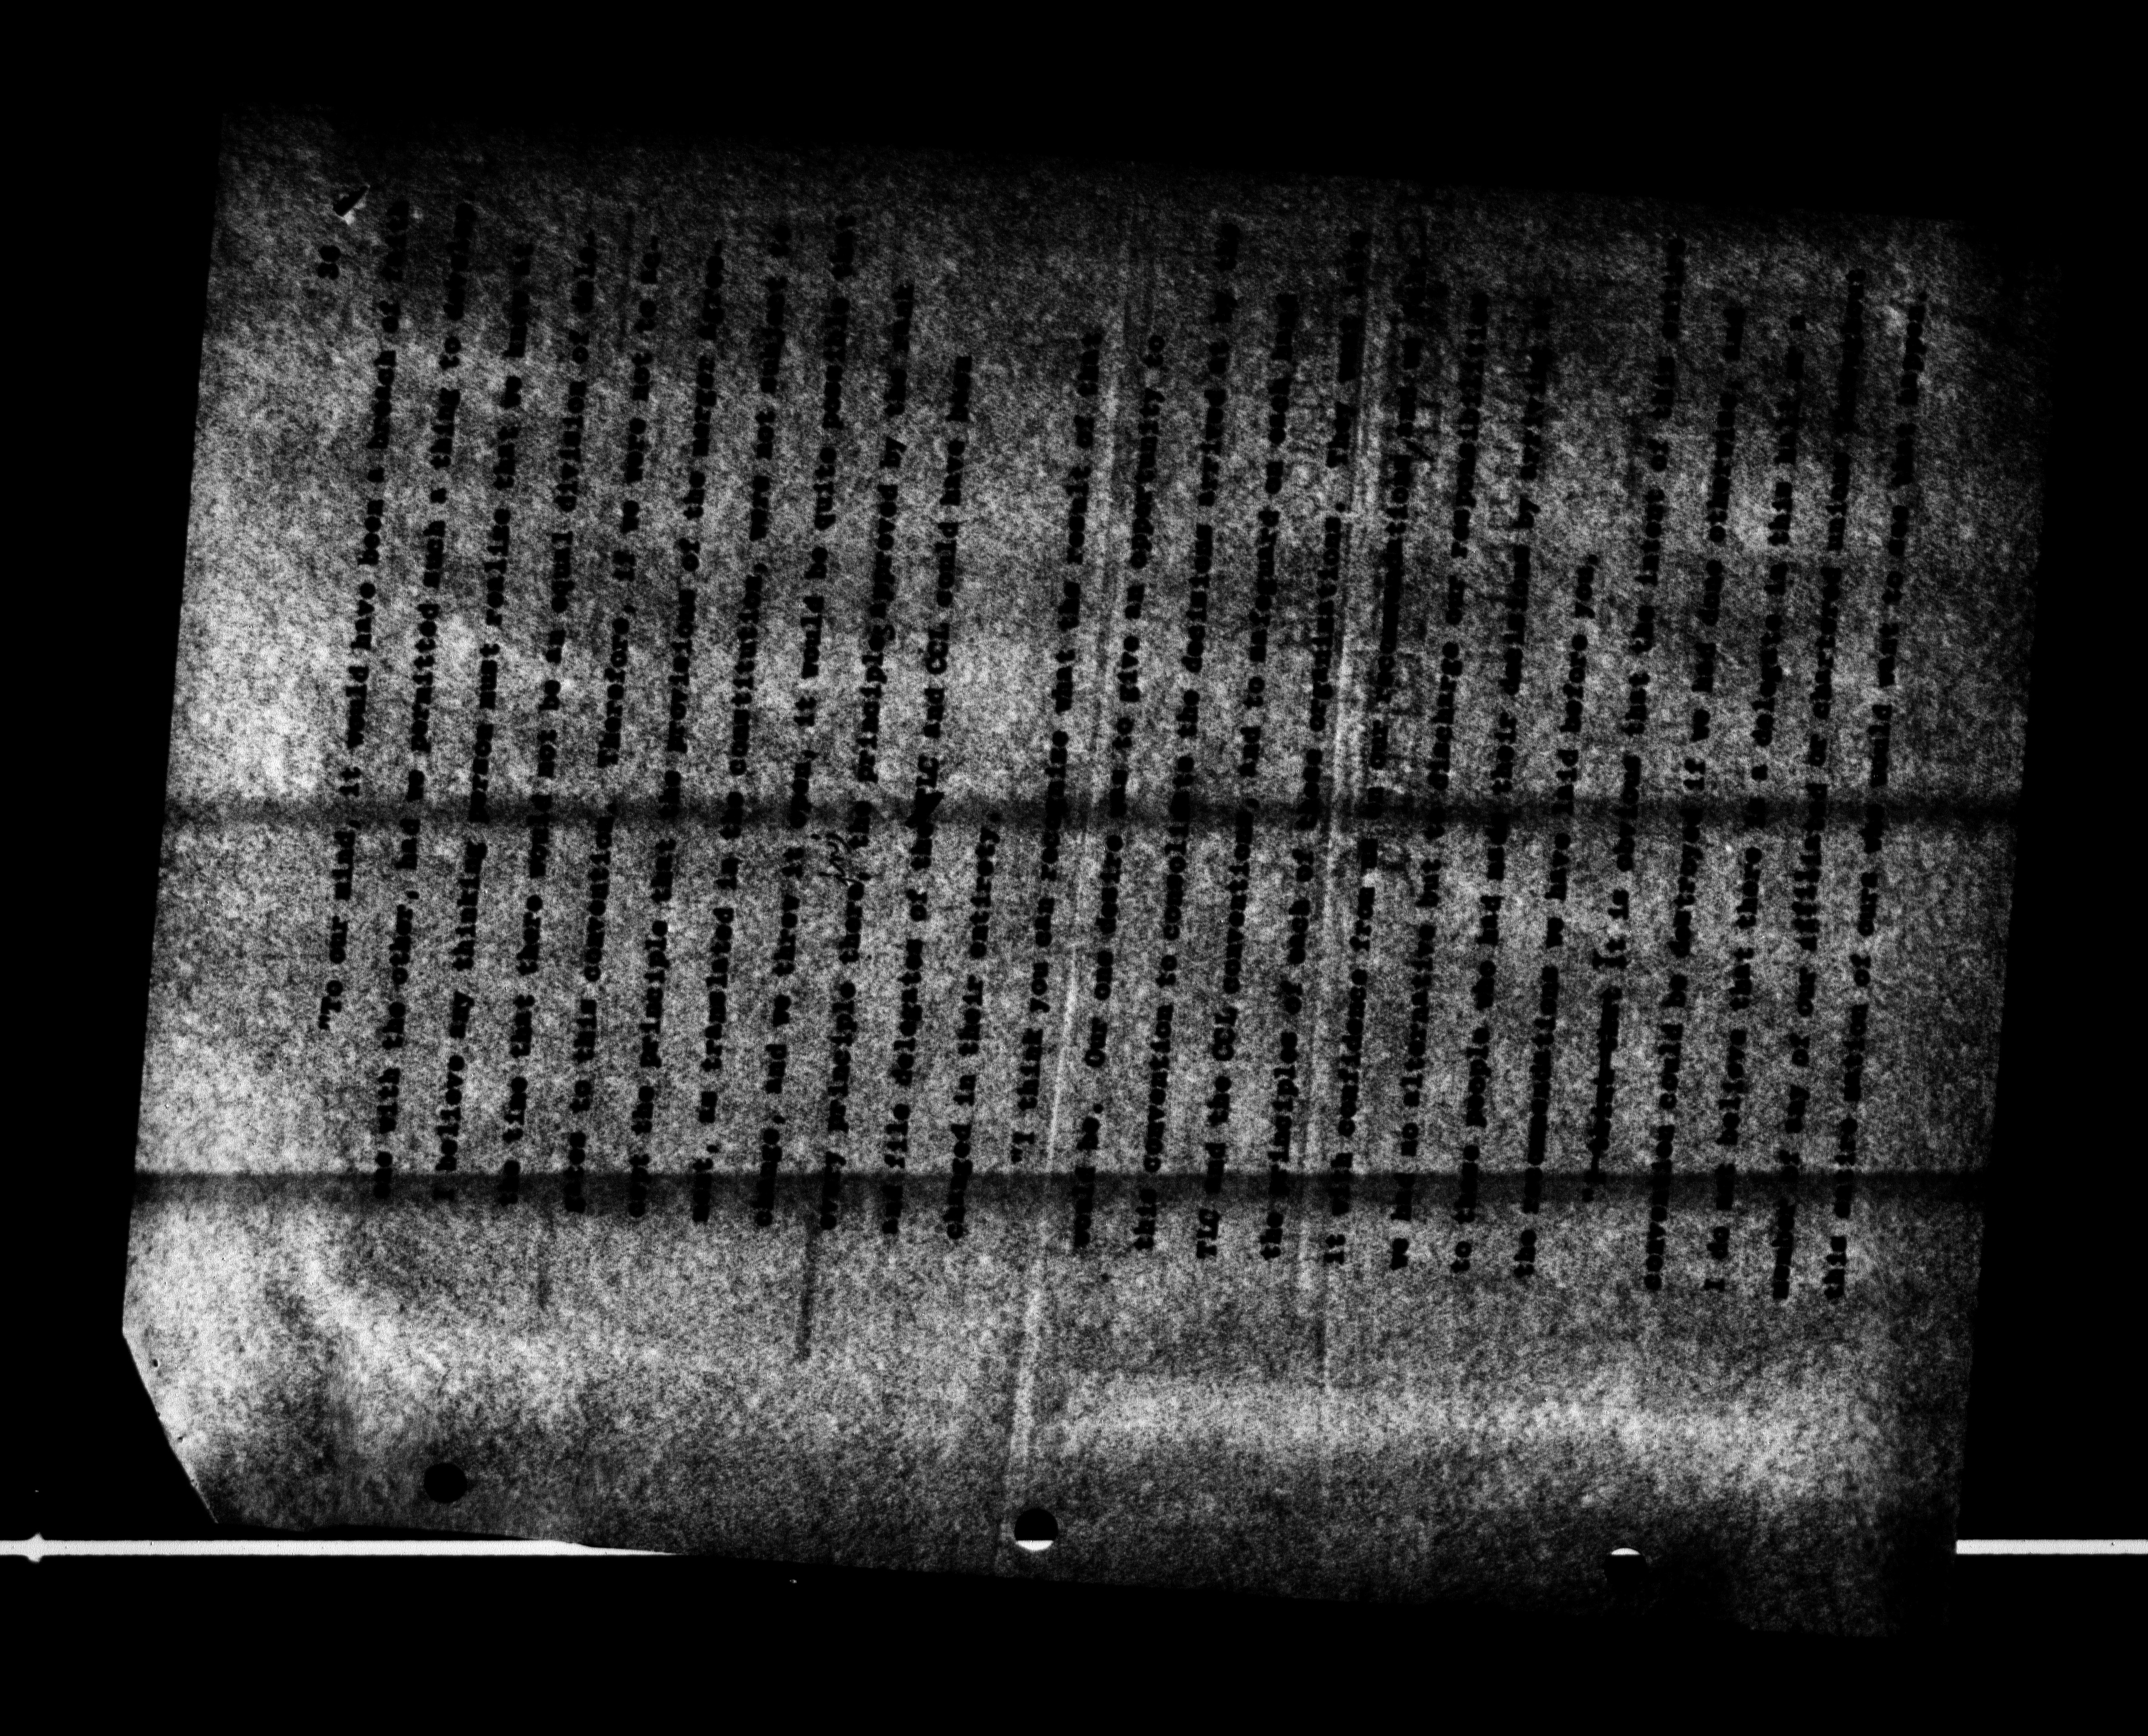 30
"To our mind, it would have been a breach of faith
one with the other, had we permitted such a thing to develop.
I believe any thinking person must realize that we knew it
the time that there would not be an equal division of dele-
gates to this convention. Therefore, if we were not to ac-
cept the principle that the provisions of the merger agree-
ment, as translated in the constitution, were not subject to
change, and we threw it open, it would be quite possible that
every principle therein, the principles approved by the rank
and file delegates of the TLC and CCL could have been
changed in their entirety.
"I think you can recognize that the result of that
would be. Our one desire was to give an opportunity to
this convention to consolidate the decisions arrived at by the
TLC and the CCL conventions, and to safeguard as much
the principles of each of those organizations. They
it with confidence from our
we had no alternative but to discharge our responsibilities
to those people who had made their decisions by arriving at
the recommendations we have laid before you.
it is obvious that the intent of the
conventions could be destroyed if we had done otherwise and
I do not believe that there is a delegate in this hall, a
member of any of our affiliated or chartered
this nation of ours, who would want to see that happen.